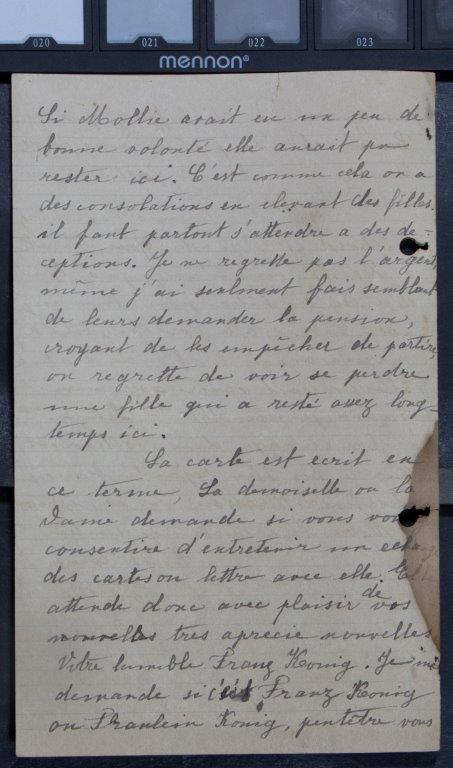 020 021 022 023
mennon®
Si Mollie avait eu un peu de
bonne volonté elle aurait pu
rester ici. C'est comme cela on a
des consolations en elevant des filles.
il faut partout s'attendre a des de-
ceptions. Je ne regrette pas l'argent,
même j'ai seulment fais semblant
de leurs demander la pension,
croyant de les empêcher de partire
on regrette de voir se perdre
une fille qui a resté assez long-
temps ici.
La carte est ecrit en
ce terme, La demoiselle ou la
Dame demande si vous
consentire d'entretenir un
des cartes ou lettre avec elle.
attende donc avec plaisir de vos
nouvelles tres aprecie nouvelles
Votre humble Franz Konig. Je me
demande si c'est Franz Konig
ou Fraulein Konig, peutetre vous